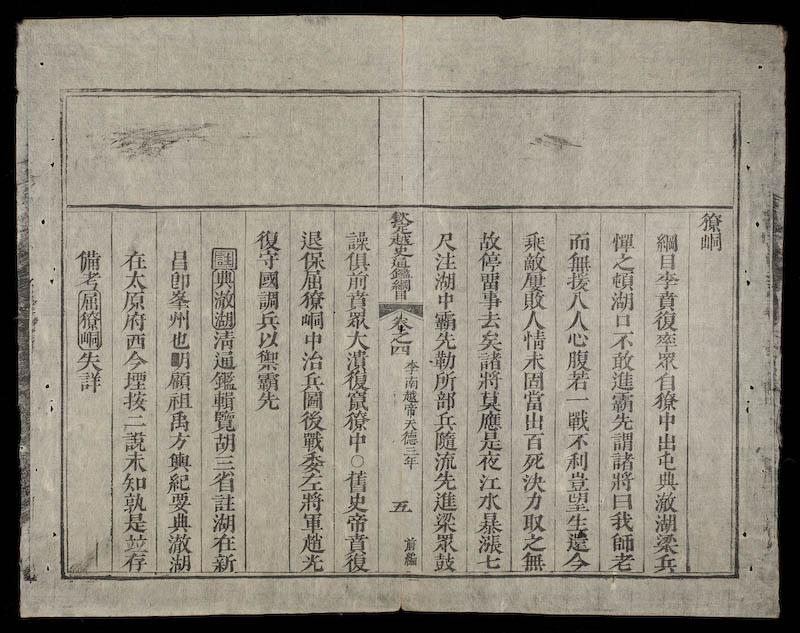 獠峒
綱目李賁復率眾自獠中出屯典澈湖梁兵
憚之頓湖口不敢進霸先謂諸將曰我師老
而無援入人心腹若一戰不利豈望生還今
乘敵屢敗人情未固當出百死決力取之無
故停畱事去矣諸將莫應是夜江水暴漲七
尺注湖中霸先勒所部兵隨流先進梁眾鼓
欽定越史通鑑綱目 卷之四 李南越帝天德三年 五 前編
譟俱前賁眾大潰復竄獠中○舊史帝賁復
退保屈獠峒中治兵圖後戰委左將軍趙光
復守國調兵以禦霸先
註典澈湖清通鑑輯覽胡三省註湖在新
昌卽峯州也明顧祖禹方輿紀要典澈湖
在太原府西今堙按二說未知孰是並存
備考屈獠峒失詳